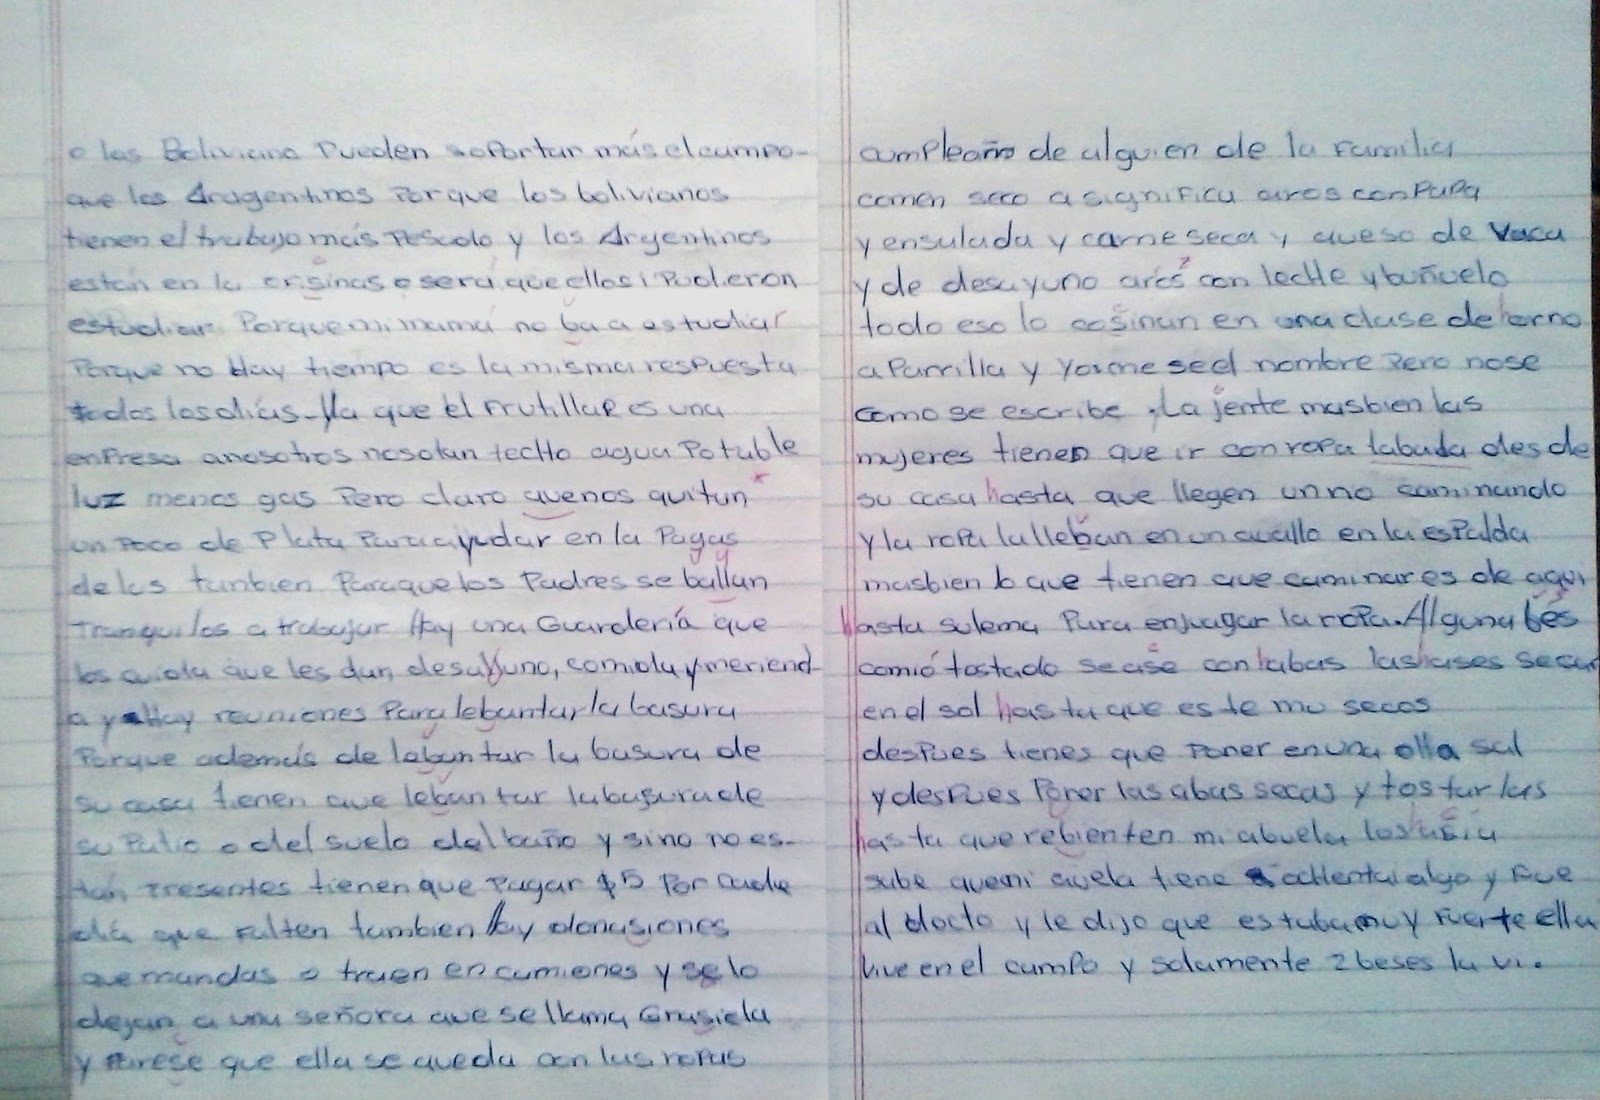 o los Boliviano Pueden soportar más el campo-
que los Aragentinos Porque los bolivianos
tienen el trabajo más Pesado y los Argentinos
están en la orisinas o será que ellos i Pudieron
estudiar Porque mi mamá no ba a estudiar
Porque no Hay tiempo es la misma respuesta
todos los días-Ya que el FrutillaR es una
enPresa anosotros nosdan tecHo agua Potable
luz menos gas Pero claro quenos quitan
un Poco de Plata Para ayudar en la Pagas
de las tanbien Paraque los Padres se ballan
Tranquilos a trabajar Hay una Guardería que
los cuida que les dan desayuno, comida y meriend-
a y Hay reuniones Para lebantar la basura
Porque además de lebantar la basura de
su casa tienen que lebantar labasurade
su Patio o del suelo del baño y sino no es-
tán Presentes tienen que Pagar $5 Por cada
día que Falten tambien Hay donasiones
que mandas o traen en camiones y se lo
dejan a una señora que se llama Grasiela
y Parese que ella se queda con las ropas
cumpleaño de alguien de la Familia
comen seco a significa aros con PaPa
y ensalada y carne seca y queso de vaca
y de desayuno arós con lecHe y buñuelo
todo eso lo cosinan en una clase de horno
a Parrilla y yo me se el nombre Pero nose
como se escribe, La jente masbien las
mujeres tienen que ir con ropa labada desde
su casa hasta que llegen unno caminando
y la ropa la lleban en un auaillo en la esPalda
masbien lo que tienen que caminar es de aqui
Hasta salema Para enjuagar la roPa. Alguna bés
comió tostado se ase con habas las hases secar
en el sol hasta que es te mu secos
desPues tienes que Poner en una olla sal
y desPues Poner las abas secas y tostar las
hasta que rebienten mi abuela los hasia
sabe quemi auela tiene ocHenta i algo y Fue
al docto y le dijo que estaba muy Fuerte ella
vive en el campo y solamente 2 beses la vi.